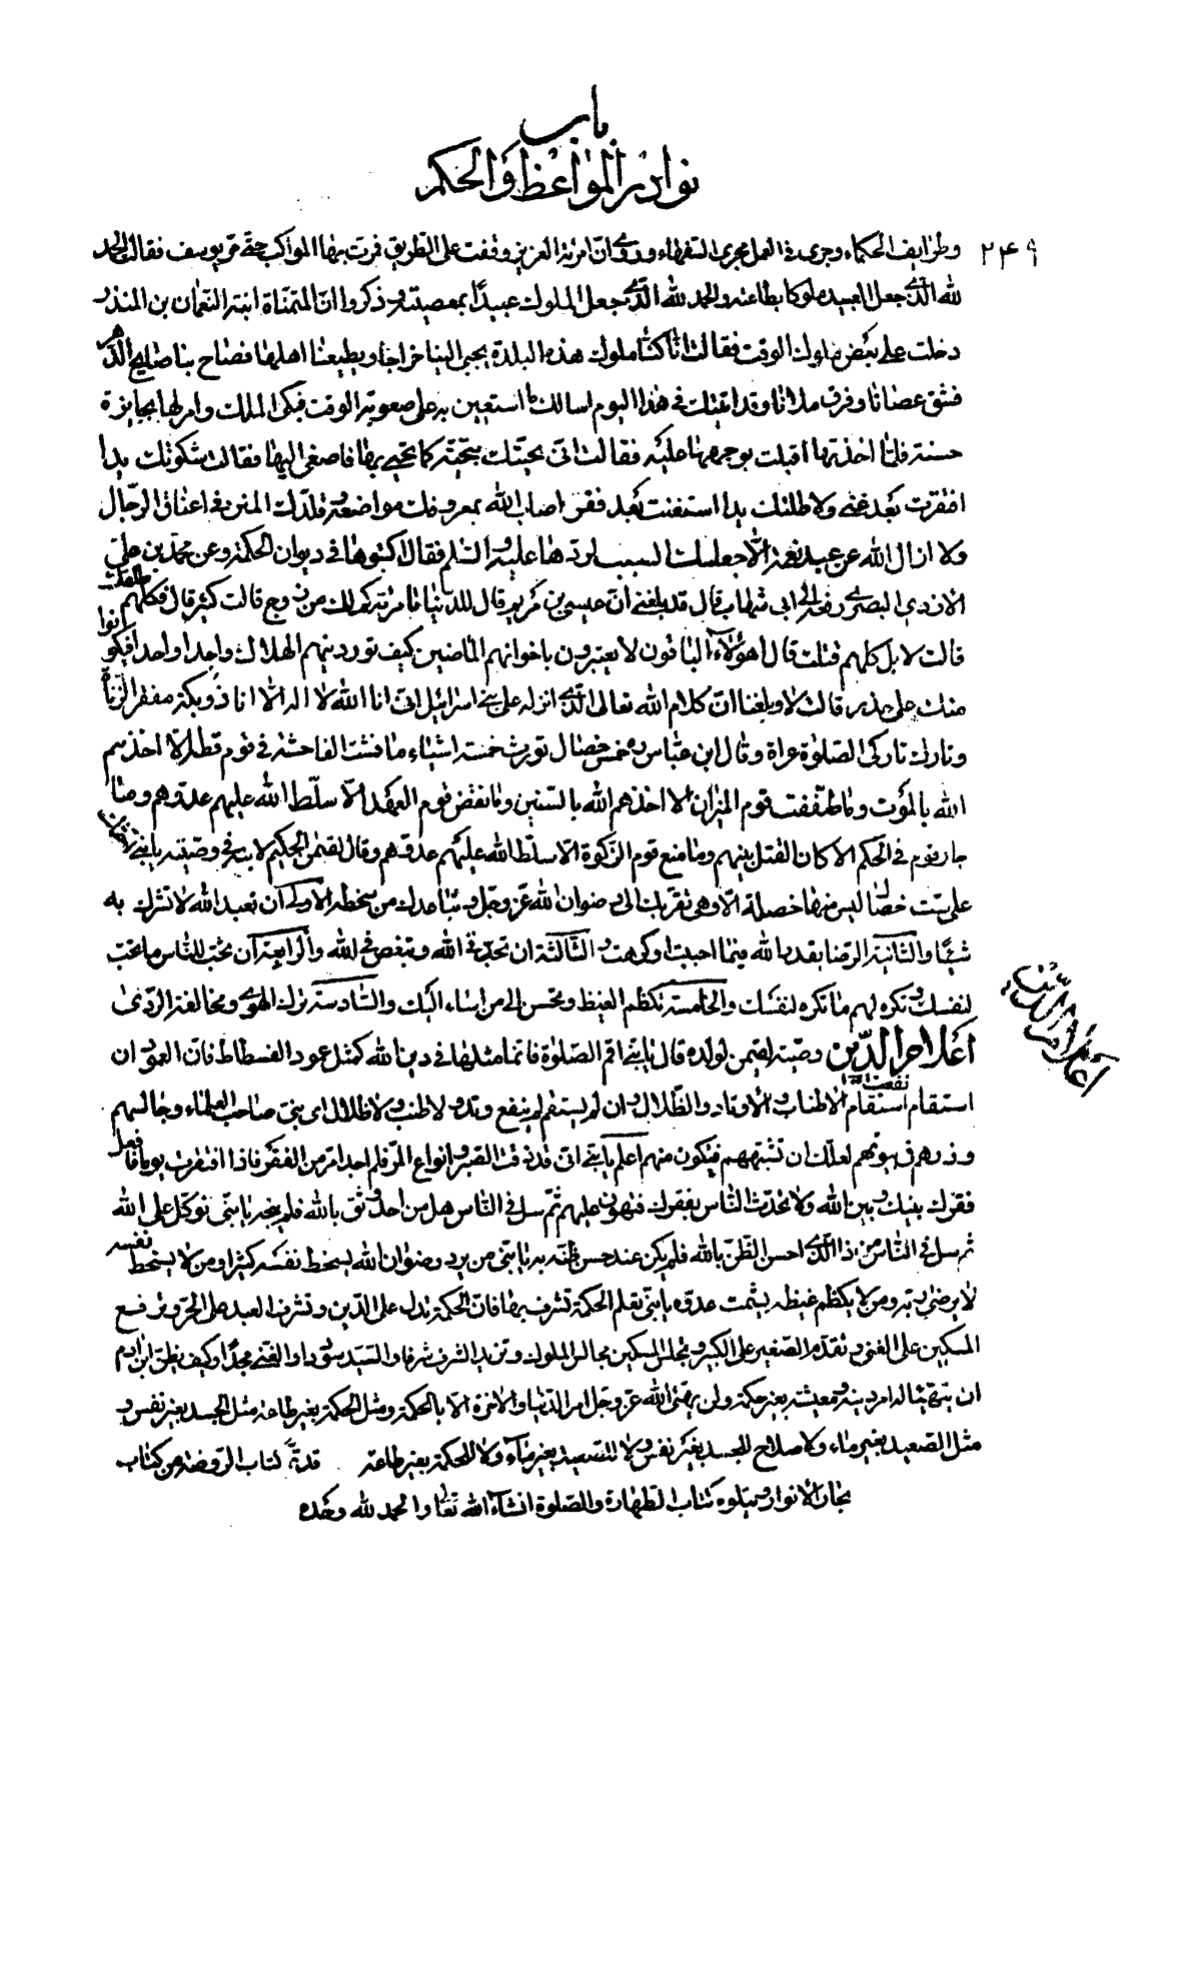 باب
نوادر المواعظ والحكم
٢٤٩
وطرايف الحكماء وجرى فى العمل مجرى السفهاء وروى ان امرئة العزيز وقفت على الطريق فمرت بها المواكب حتى مر يوسف فقالت الحمد
لله الذى جعل العبيد ملوكا بطاعته والحمد لله الذى جعل الملوك عبيدا بمعصيته وذكروا ان المتمناة ابنة النعمان بن المنذر
دخلت على بعض ملوك الوقت فقالت انا كنا ملوك هذه البلدة يجبى الينا خراجها ويطيعنا اهلها فصاح بنا صايح الدهر
فشق عصانا وفرق ملانا وقد اتيتك فى هذا اليوم اسالك ما استعين به على صعوبة الوقت فبكى الملك وامر لها بجايزة
حسنة فلما اخذتها اقبلت بوجهها عليه فقالت انى محييتك بتحية كنا نحيى بها فاصغى اليها فقالت شكرتك يد
افتقرت بعد غنى ولا ملكتك يد استغنت بعد فقر اصاب الله بمعروفك مواضعه وقلدك المنن فى اعناق الرجال
ولا ازال الله عن عبد نعمة الا جعلك السبب لردها عليه والسلم فقال اكتبوها فى ديوان الحكمة وعن محمد بن على
الازدى البصرى رفعه الى ابى شهاب قال قد بلغنى ان عيسى بن مريم قال للدنيا يا امرئة كم لك من زوج قالت كثير قال فكلهم طلقك
قالت لا بل كلهم قتلت قال اهؤلاء الباقون لا يعتبرون باخوانهم الماضين كيف توردينهم المهالك واحدا واحدا فيكونوا
منك على حذر قالت لا وبلغنا ان كلام الله تعالى الذى انزله على بنى اسرائيل انى انا الله لا اله الا انا ذو بكة مفقر الزناة
وتارك تاركى الصلوة عراة وقال ابن عباس رض خمس خصال تورث خمسة اشياء ما فشت الفاحشة فى قوم قط الا اخذهم
الله بالموت وما طففت قوم الميزان الا اخذهم الله بالسنين وما نقض قوم العهد الا سلط الله عليهم عدوهم وما
جار قوم فى الحكم الا كان القتل بينهم وما منع قوم الزكوة الا سلط الله عليهم عدوهم وقال لقمن الحكيم لابنه فى وصيته يا بنى
على ست خصال ليس منها خصلة الا وهى تقربك الى رضوان الله عز وجل وتباعدك من سخطه الاولى ان تعبد الله لا تشرك به
شيئا والثانية الرضا بقدر الله فيما احببت او كرهت والثالثة ان تحب فى الله وتبغض فى الله والرابعة ان تحب للناس ما تحب
لنفسك وتكره لهم ما تكره لنفسك والخامسة تكظم الغيظ وتحسن الى من اساء اليك والسادسة ترك الهوى ومخالفة الردى
اعلام الدين
اعلام الدين وصية لقمن لولده قال يا بنى اقم الصلوة فانما مثلها فى دين الله كمثل عمود الفسطاط فان العمود ان
استقام استقام الاطناب والاوتاد والظلال وان لم يستقم لم ينفع وتد ولا طنب ولا ظلال اى بنى صاحب العلماء وجالسهم
وزرهم فى بيوتهم لعلك ان تشبههم فتكون منهم اعلم يا بنى انى قد ذقت الصبر وانواع المر فلم اجد امر من الفقر فاذا افتقرت يوما فاجعل
فقرك بينك وبين الله ولا تحدث الناس بفقرك فتهون عليهم ثم سل فى الناس هل من احد وثق بالله فلم ينجه يا بنى توكل على الله
ثم سل فى الناس من ذا الذى احسن الظن بالله فلم يكن عند حسن ظنه به يا بنى من يرد رضوان الله يسخط نفسه كثيرا ومن لا يسخط نفسه
لا يرضى ربه ومن لا يكظم غيظه يشمت عدوه يا بنى تعلم الحكمة تشرف بها فان الحكمة تدل على الدين وتشرف العبد على الحر وترفع
المسكين على الغنى وتقدم الصغير على الكبير وتجلس المسكين مجالس الملوك وتزيد الشريف شرفا والسيد سوددا والغنى مجدا وكيف يظن ابن ادم
ان يتهيا له امر دينه ومعيشته بغير حكمة ولن يهيئ الله عز وجل امر الدنيا والاخرة الا بالحكمة ومثل الحكمة بغير طاعة مثل الجسد بغير نفس و
مثل الصعيد بغير ماء ولا صلاح للجسد بغير نفس ولا للصعيد بغير ماء ولا للحكمة بغير طاعة قد تم كتاب الروضة من كتاب
بحار الانوار ويتلوه كتاب الطهارة والصلوة انشاء الله تعالى والحمد لله وحده